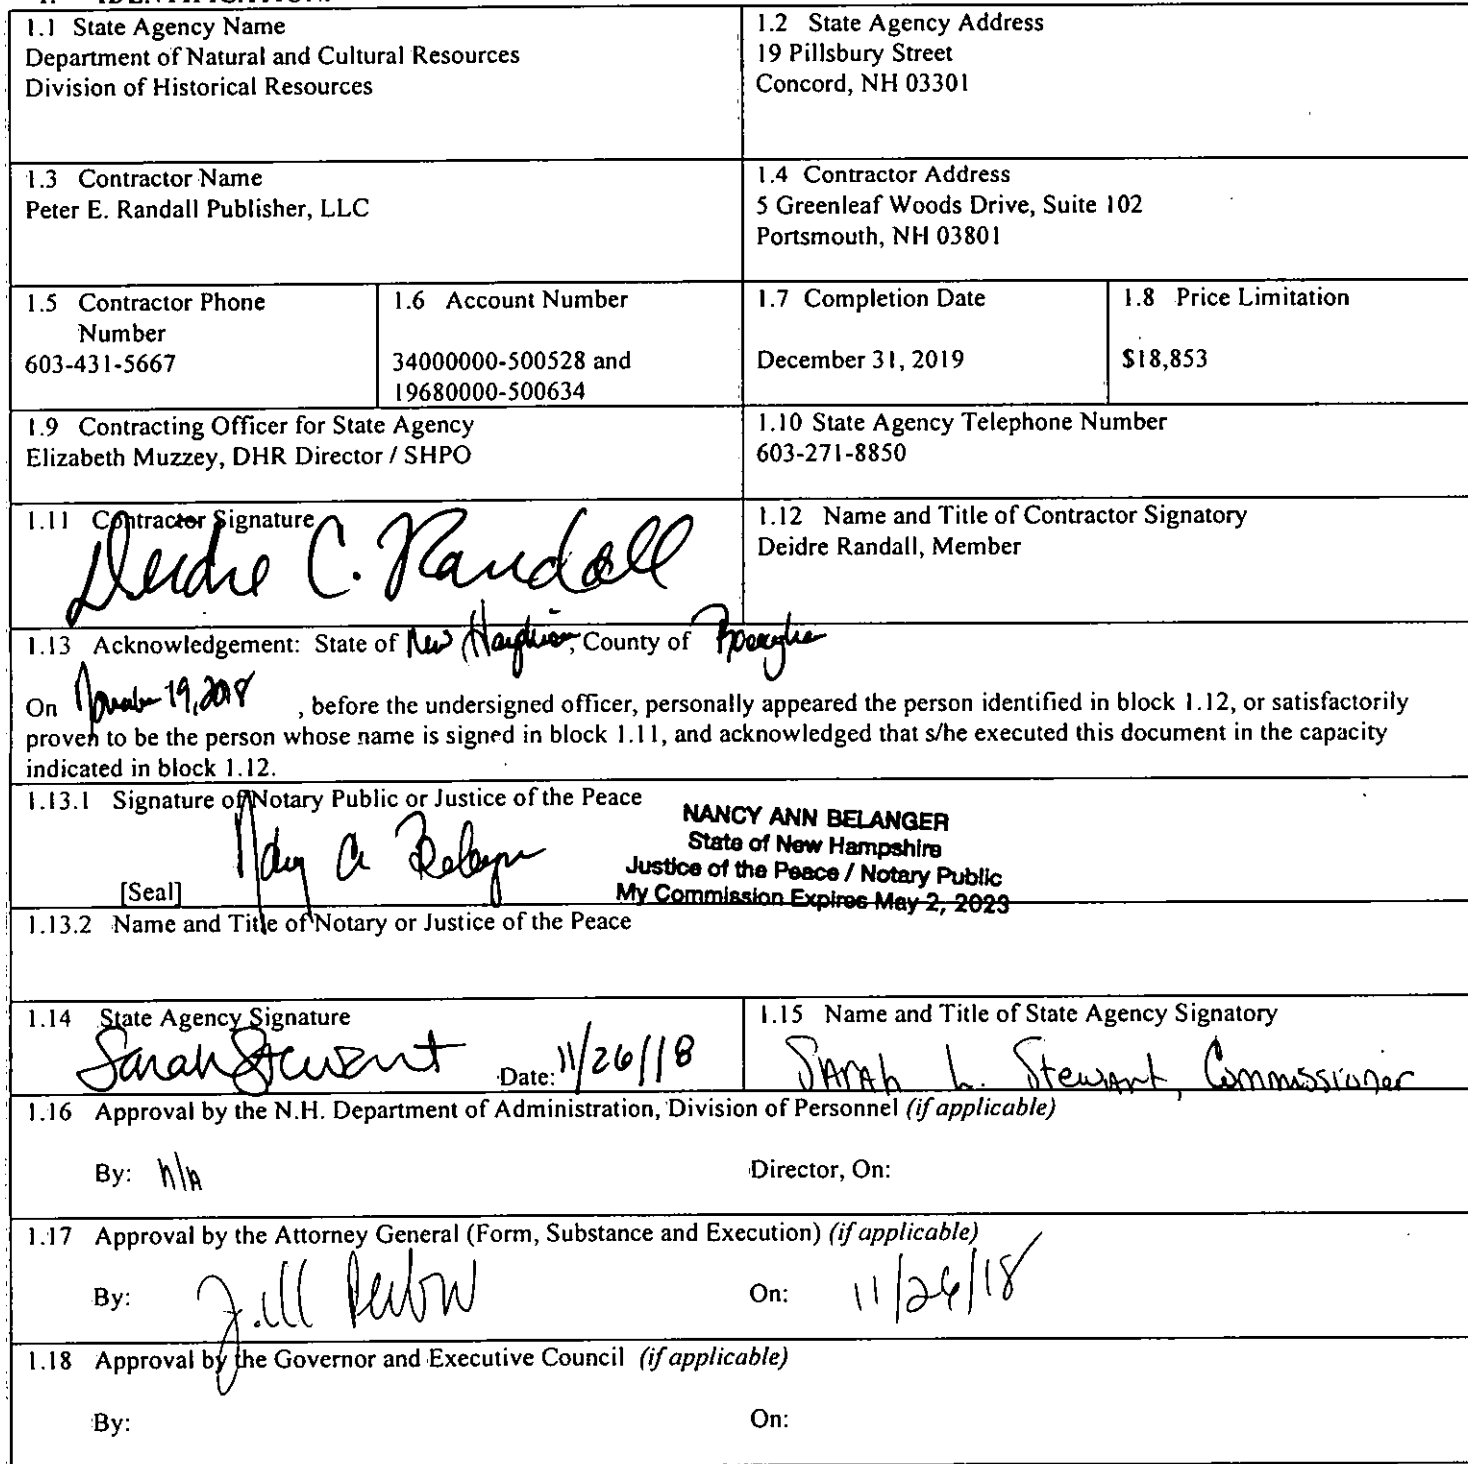 1.1 State Agency Name
Department of Natural and Cultural Resources
Division of Historical Resources
1.2 State Agency Address
19 Pillsbury Street
Concord, NH 03301
1.3 Contractor Name
Peter E. Randall Publisher, LLC
1.4 Contractor Address
5 Greenleaf Woods Drive, Suite 102
Portsmouth, NH 03801
1.5 Contractor Phone
Number
603-431-5667
1.6 Account Number
34000000-500528 and
19680000-500634
1.7 Completion Date
December 31, 2019
1.8 Price Limitation
$18,853
1.9 Contracting Officer for State Agency
Elizabeth Muzzey, DHR Director / SHPO
1.10 State Agency Telephone Number
603-271-8850
1.11 Contractor Signature
Deidre C. Randall
1.12 Name and Title of Contractor Signatory
Deidre Randall, Member
1.13 Acknowledgement: State of New Hampshire, County of
On November 19, 2018 , before the undersigned officer, personally appeared the person identified in block 1.12, or satisfactorily
proven to be the person whose name is signed in block 1.11, and acknowledged that s/he executed this document in the capacity
indicated in block 1.12.
1.13.1 Signature of Notary Public or Justice of the Peace
NANCY ANN BELANGER
State of New Hampshire
Justice of the Peace / Notary Public
My Commission Expires May 2, 2023
Nancy A Belanger
[Seal]
1.13.2 Name and Title of Notary or Justice of the Peace
1.14 State Agency Signature
Sarah Stewart Date: 11/26/18
1.15 Name and Title of State Agency Signatory
Sarah L. Stewart, Commissioner
1.16 Approval by the N.H. Department of Administration, Division of Personnel (if applicable)
By: N/A Director, On:
1.17 Approval by the Attorney General (Form, Substance and Execution) (if applicable)
By: Jill Perlow On: 11/26/18
1.18 Approval by the Governor and Executive Council (if applicable)
By: On: